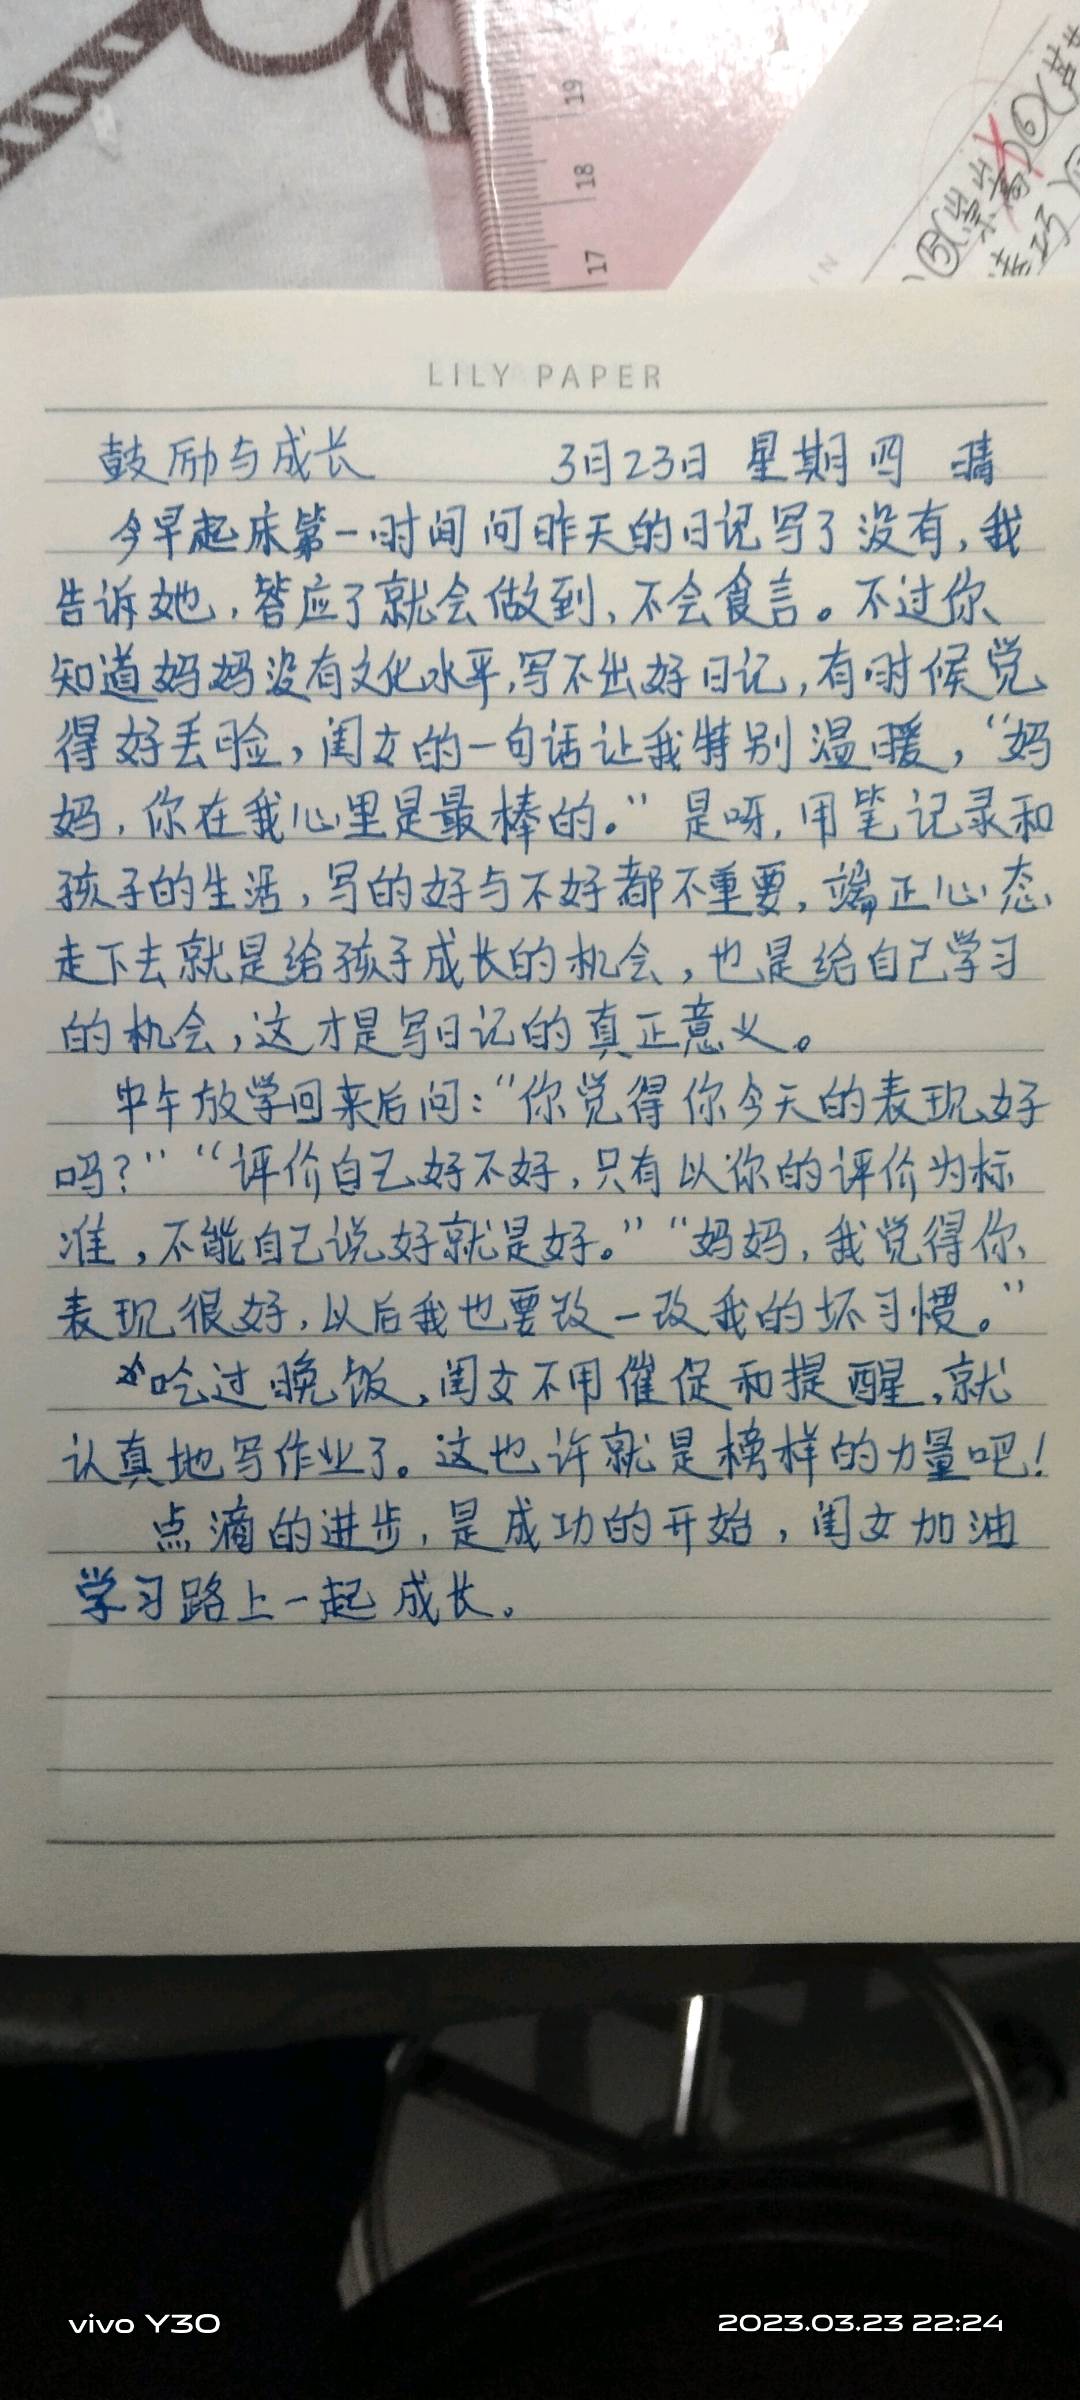 19
18
17
LILY PAPER
鼓励与成长 3日23日 星期四 晴
今早起床第一时间问昨天的日记写了没有,我
告诉她,答应了就会做到,不会食言。不过你
知道妈妈没有文化水平,写不出好日记,有时候觉
得好丢脸,闺女的一句话让我特别温暖,“妈
妈,你在我心里是最棒的。”是呀,用笔记录和
孩子的生活,写的好与不好都不重要,端正心态,
走下去就是给孩子成长的机会,也是给自己学习
的机会,这才是写日记的真正意义。
中午放学回来后问:“你觉得你今天的表现好
吗?”“评价自己好不好,只有以你的评价为标
准,不能自己说好就是好。”“妈妈,我觉得你
表现很好,以后我也要改一改我的坏习惯。”
吃过晚饭,闺女不用催促和提醒,就
认真地写作业了。这也许就是榜样的力量吧!
点滴的进步,是成功的开始,闺女加油
学习路上一起成长。
vivo Y30
2023.03.23 22:24